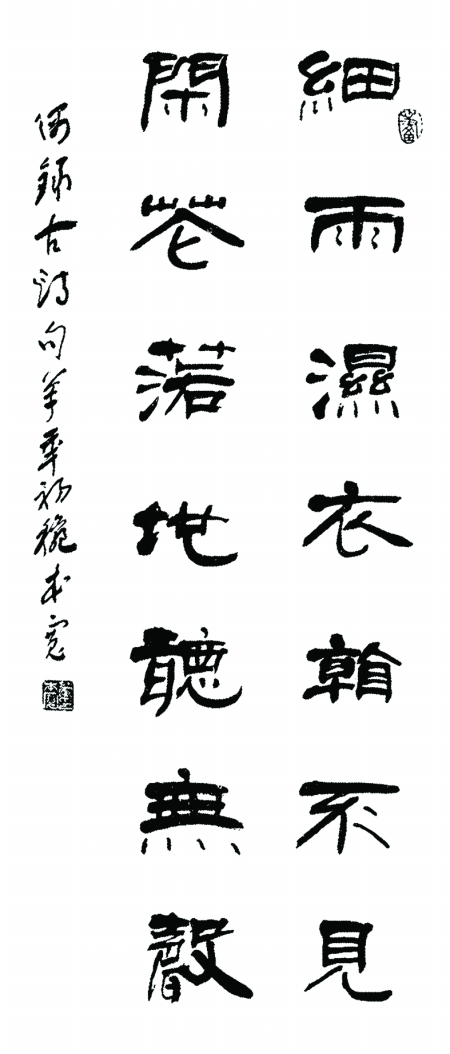 細雨濕衣看不見
閑花落地聽無聲
偶錄古詩句羊年初穐本寬